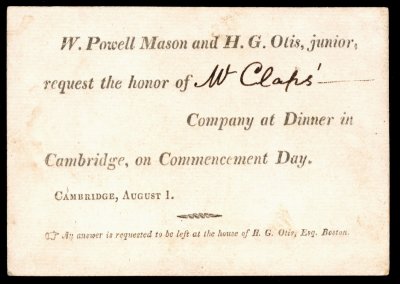 W. Powell Mason and H. G. Otis, junior,
request the honor of Mr Claps'
Company at Dinner in
Cambridge, on Commencement Day.
CAMBRIDGE, AUGUST 1.
☞ An answer is requested to be left at the house of H. G. Otis, Esq. Boston.